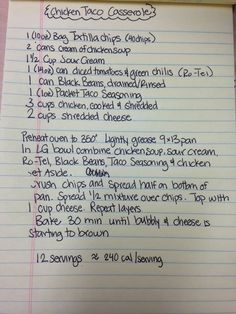 {Chicken Taco Casserole}
1 (10oz) Bag Tortilla chips (40 chips)
2 cans cream of chicken soup
1 1/2 Cup Sour Cream
1 (14oz) can diced tomatoes & green chilis (Ro-Tel)
1 can Black Beans, drained/rinsed
1 (1oz) Packet Taco Seasoning
3 cups chicken, cooked & shredded
2 cups shredded cheese
Preheat oven to 350° Lightly grease 9x13 pan
In LG bowl combine chicken soup, sour cream,
Ro-Tel, Black Beans, Taco Seasoning & chicken
et Aside.
rush chips and Spread half on bottom of
pan. Spread 1/2 mixture over chips. Top with
1 cup cheese. Repeat layers.
Bake 30 min until bubbly & cheese is
starting to brown
12 servings ≈ 240 cal/serving